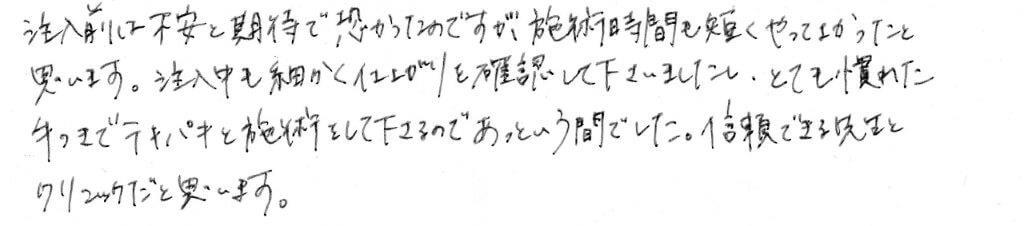 注入前は不安と期待で恐かったのですが、施術時間も短くやってよかったと
思います。注入中も細かく仕上がりを確認して下さいましたし、とても慣れた
手つきでテキパキと施術をして下さるのであっという間でした。信頼できる先生と
クリニックだと思います。